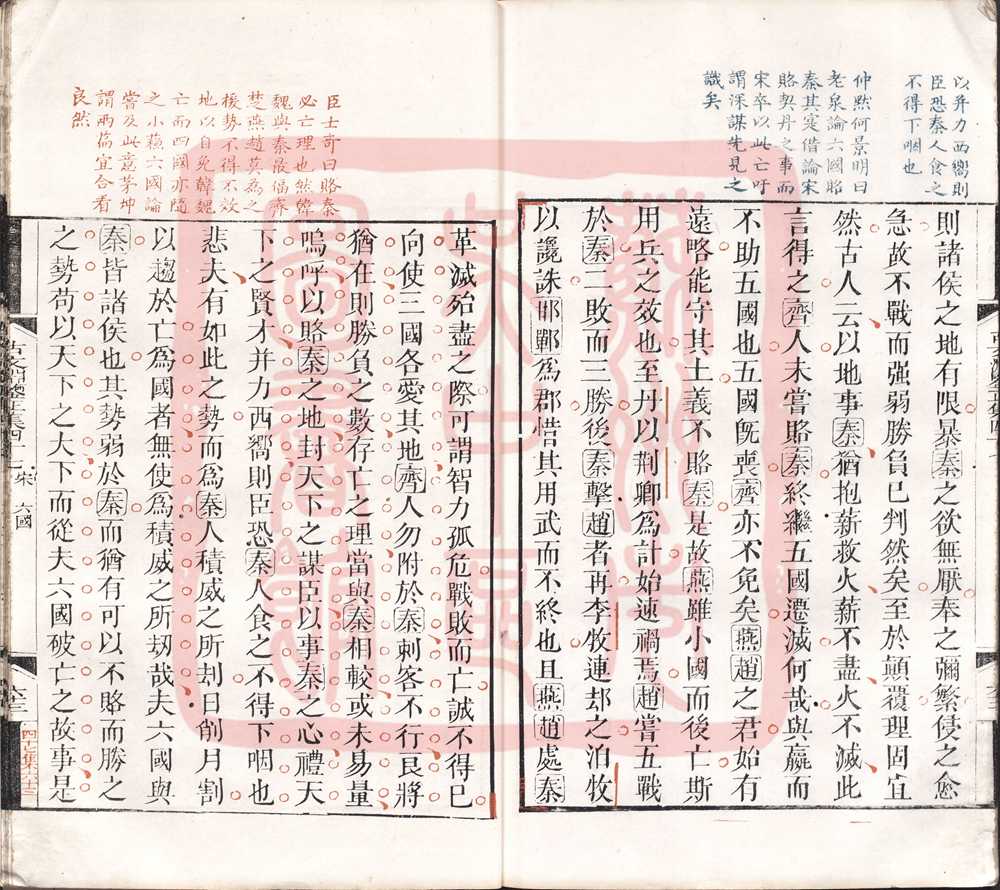 以并力西嚮則
臣恐秦人食之
不得下咽也
仲默何景明曰
老泉論六國賂
秦其寔借論宋
賂契丹之事而
宋卒以此亡吁
謂深謀先見之
識矣
則諸侯之地有限暴秦之欲無厭奉之彌繁侵之愈
急故不戰而强弱勝負已判然矣至於顛覆理固宜
然古人云以地事秦猶抱薪救火薪不盡火不滅此
言得之齊人未嘗賂秦終繼五國遷滅何哉與嬴而
不助五國也五國旣喪齊亦不免矣燕趙之君始有
遠略能守其土義不賂秦是故燕雖小國而後亡斯
用兵之效也至丹以荆卿爲計始速禍焉趙嘗五戰
於秦二敗而三勝後秦擊趙者再李牧連却之洎牧
以讒誅邯鄲爲郡惜其用武而不終也且燕趙處秦
臣士奇曰賂秦
必亡理也然韓
魏與秦最偪齊
楚燕趙莫為之
援勢不得不效
地以自免韓魏
亡而四國亦隨
之小蘇六國論
嘗及此意茅坤
謂兩篇宜合看
良然
革滅殆盡之際可謂智力孤危戰敗而亡誠不得已
向使三國各愛其地齊人勿附於秦刺客不行良將
猶在則勝負之數存亡之理當與秦相較或未易量
嗚呼以賂秦之地封天下之謀臣以事秦之心禮天
下之賢才并力西嚮則臣恐秦人食之不得下咽也
悲夫有如此之勢而爲秦人積威之所刦日削月割
以趨於亡爲國者無使爲積威之所刼哉夫六國與
秦皆諸侯也其勢弱於秦而猶有可以不賂而勝之
之勢苟以天下之大下而從夫六國破亡之故事是
古文淵鑒正集四十七 宋 六國